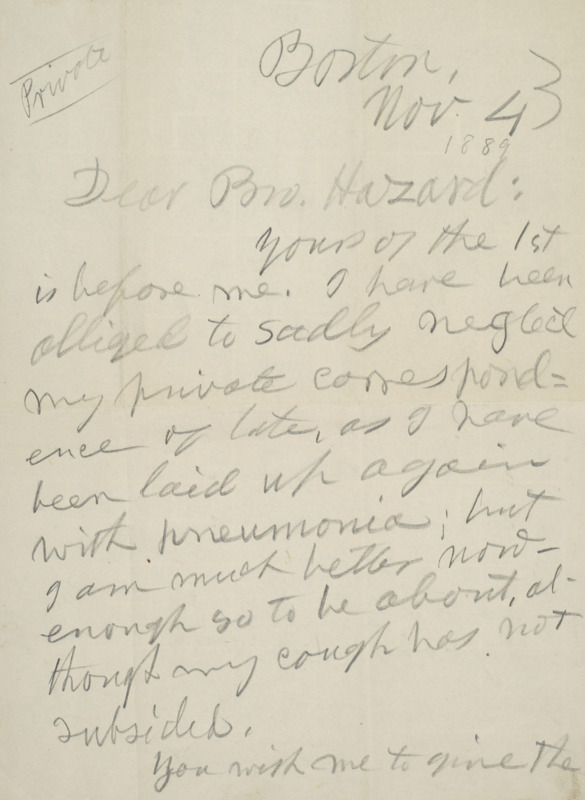 Private
Boston,
Nov. 4
1889
Dear Bro. Hazard:
Yours of the 1st
is before me. I have been
obliged to sadly neglect
my private correspond=
ence of late, as I have
been laid up again
with pneumonia; but
I am much better now-
enough so to be about, al-
though my cough has not
subsided.
You wish me to give the